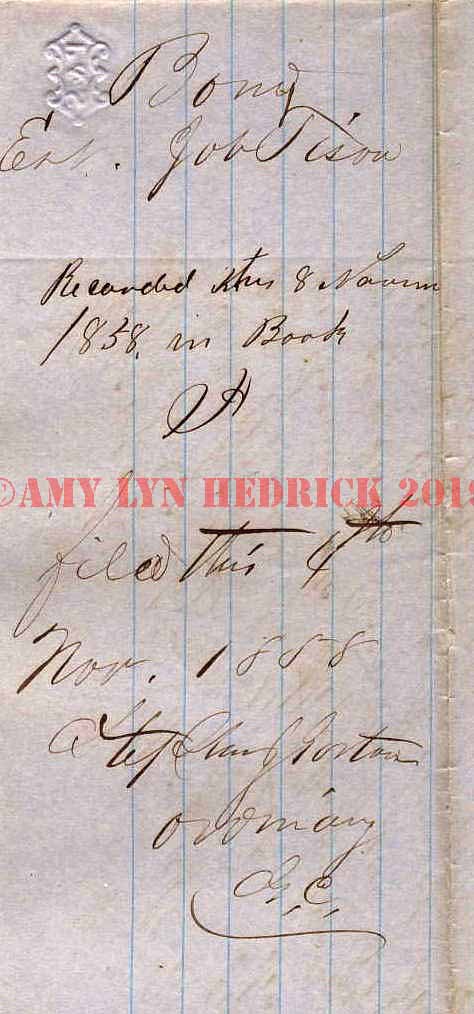 Bond
Est. Job Tison
Recorded this 8 Novm
1858. in Book
H
©AMY LYN HEDRICK 2018
filed this 4th
Nov. 1858
Stephen
ordinary
G. C.